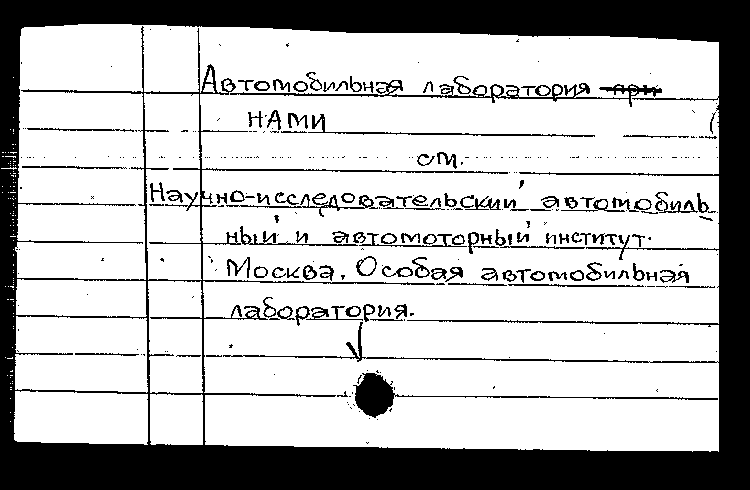 Автомобильная лаборатория при
НАМИ
см.
Научно-исследовательский автомобиль
ный и автомоторный институт.
Москва. Особая автомобильная
лаборатория.